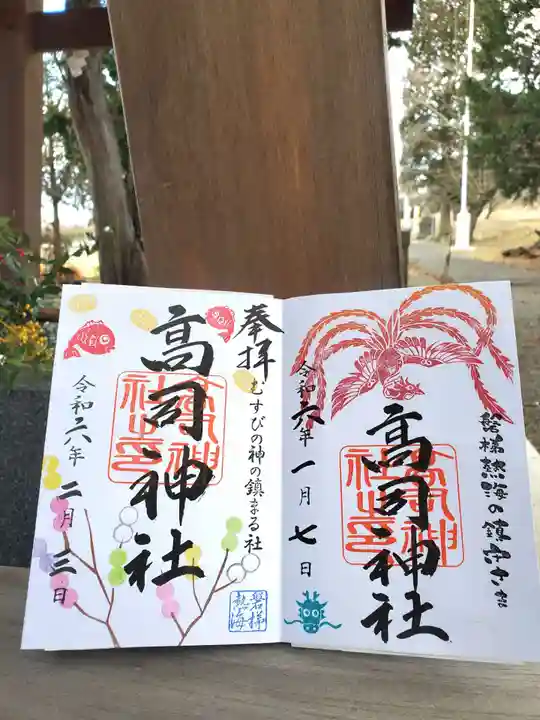 奉拝
むすびの神の鎮まる社
高司神社
高司神社之印
令和六年二月三日
磐梯熱海
磐梯熱海の鎮守さま
高司神社
高司神社之印
令和六年一月七日